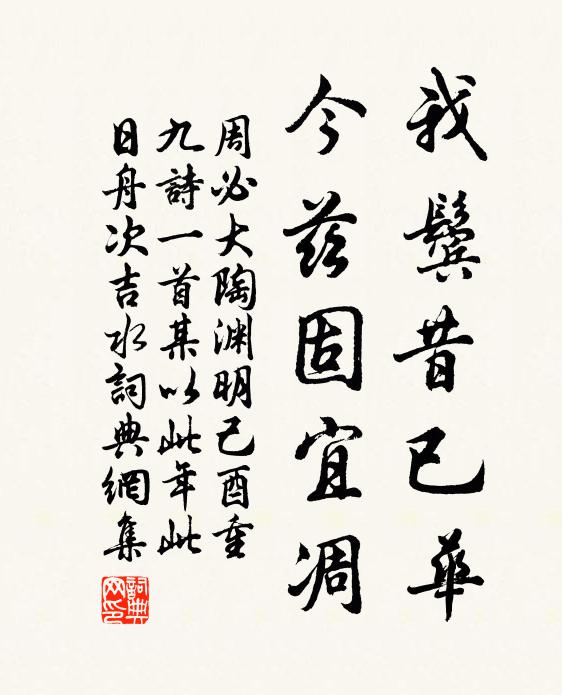 我鬢昔已華
今茲固宜凋
周必大陶渊明己酉重
九詩一首某以此年此
日舟次吉水詞典網集
詞典網印